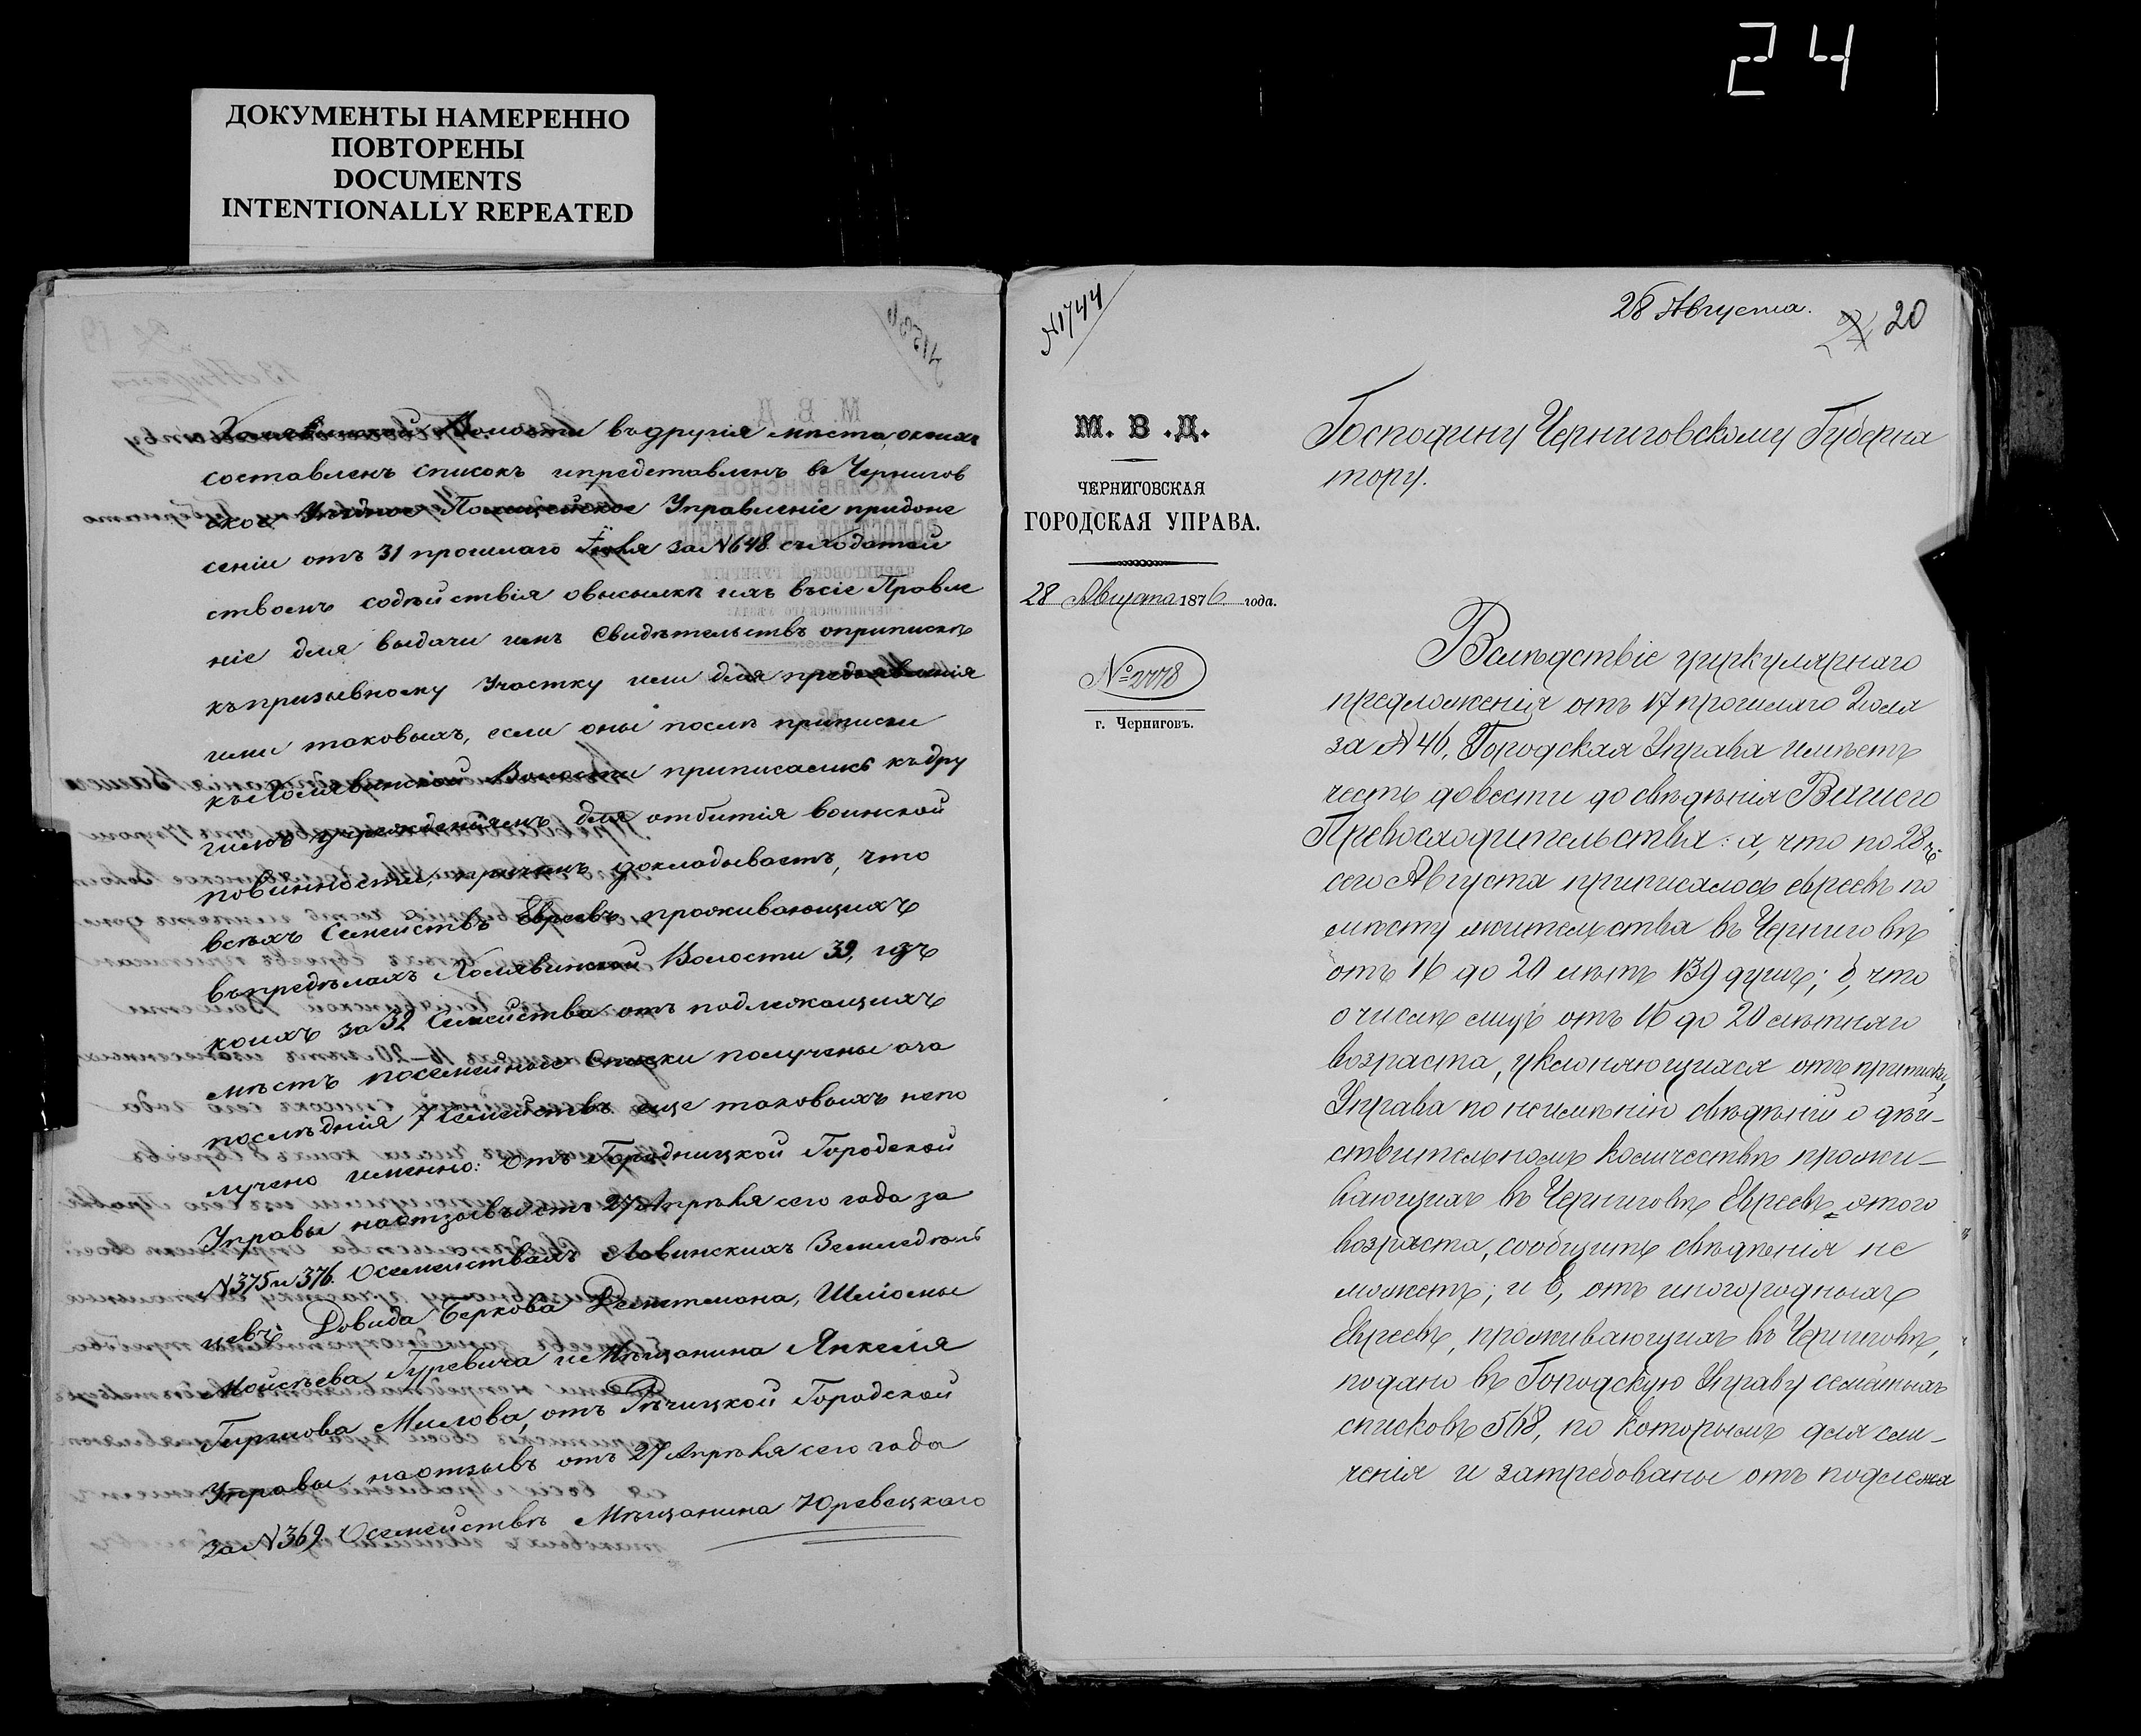 24
ДОКУМЕНТЫ НАМЕРЕННО
ПОВТОРЕНЫ
DOCUMENTS
INTENTIONALLY REPEATED
Холявинской Волости въ другія мѣста, окоихъ
составленъ списокъ ипредставленъ въ Чернигов
ское Уѣздное Полицейское Управленіе придоне
сеніи отъ 31 прошлаго Іюля за №648 съ ходатай
ствомъ содѣйствія овысылкѣ ихъ въсіе Правле
ніе для выдачи имъ Свидѣтельствъ оприпискѣ
къпризывному Участку или для предъявленія
ими таковыхъ, если оны послѣ приписки
къ Холявинской Волости приписались къ дру
гимъ учрежденіямъ для отбытія воинской
повинности, причемъ докладываетъ, что
всѣхъ Семействъ Евреевъ проживающихъ
въпредѣлахъ Холявинской Волости 39, изъ
коихъ за 32 Семейства отъ подлежащихъ
мѣстъ посемейные Списки получены аза
послѣднія 7 Семействъ еще таковыхъ непо
лучено именно: Отъ Городницкой Городской
Управы наотзывъ отъ 27 Апрѣля сего года за
№375 и 376. Осемействахъ Ловинскихъ Земледѣль
цевъ: Довида Беркова Шліомы
Мойсѣева Гуревича и Мѣщанина Янкеля
Гиршова Милова, отъ Рѣчицкой Городской
Управы наотзывъ отъ 27 Апрѣля сего года
за №369 Осемействѣ Мѣщанина Юревецкаго
№1744
28 Августа.
20
М. В. Д.
ЧЕРНИГОВСКАЯ
ГОРОДСКАЯ УПРАВА.
28 Августа 1876 года.
№ 2778
г. Черниговъ.
Господину Черниговскому Губерна
тору.
Вслѣдствіе циркулярнаго
предложенія отъ 17 прошлаго Іюля
за №46, Городская Управа имѣетъ
честь довести до свѣдѣнія Вашего
Превосходительства: а, что по 28 ч.
сего Августа приписалось евреевъ по
мѣсту жительства въ Черниговѣ
отъ 16 до 20 лѣтъ 139 душъ; б, что
о числѣ лицъ отъ 16 до 20 лѣтняго
возраста, уклоняющихся отъ приписки,
Управа по неимѣнію свѣдѣній о дѣй-
ствительномъ количествѣ прожи-
вающихъ въ Черниговѣ Евреевъ этого
возраста, сообщить свѣдѣнія не
можетъ; и в, отъ иногородныхъ
Евреевъ, проживающихъ въ Черниговѣ,
подано въ Городскую Управу семейныхъ
списковъ 568, по которымъ для сли-
ченія и затребованы отъ подлежа